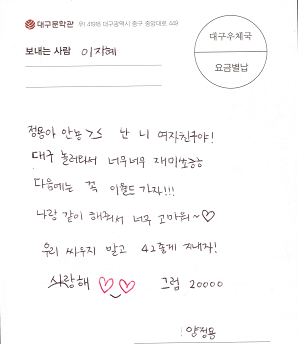 대구문학관 우) 41918 대구광역시 중구 중앙대로 449
보내는 사람 이지혜
대구우체국
요금별납
정용아 안농>_< 난 니 여자친구야!
대구 놀러와서 너무너무 재미쏘층층
다음에는 꼭 이월드 가자!!!
나랑 같이 해줘서 너무 고마워~♡
우리 싸우지 말고 42좋게 지내자!
사랑해 ♡♡ 그럼 20000
양정용